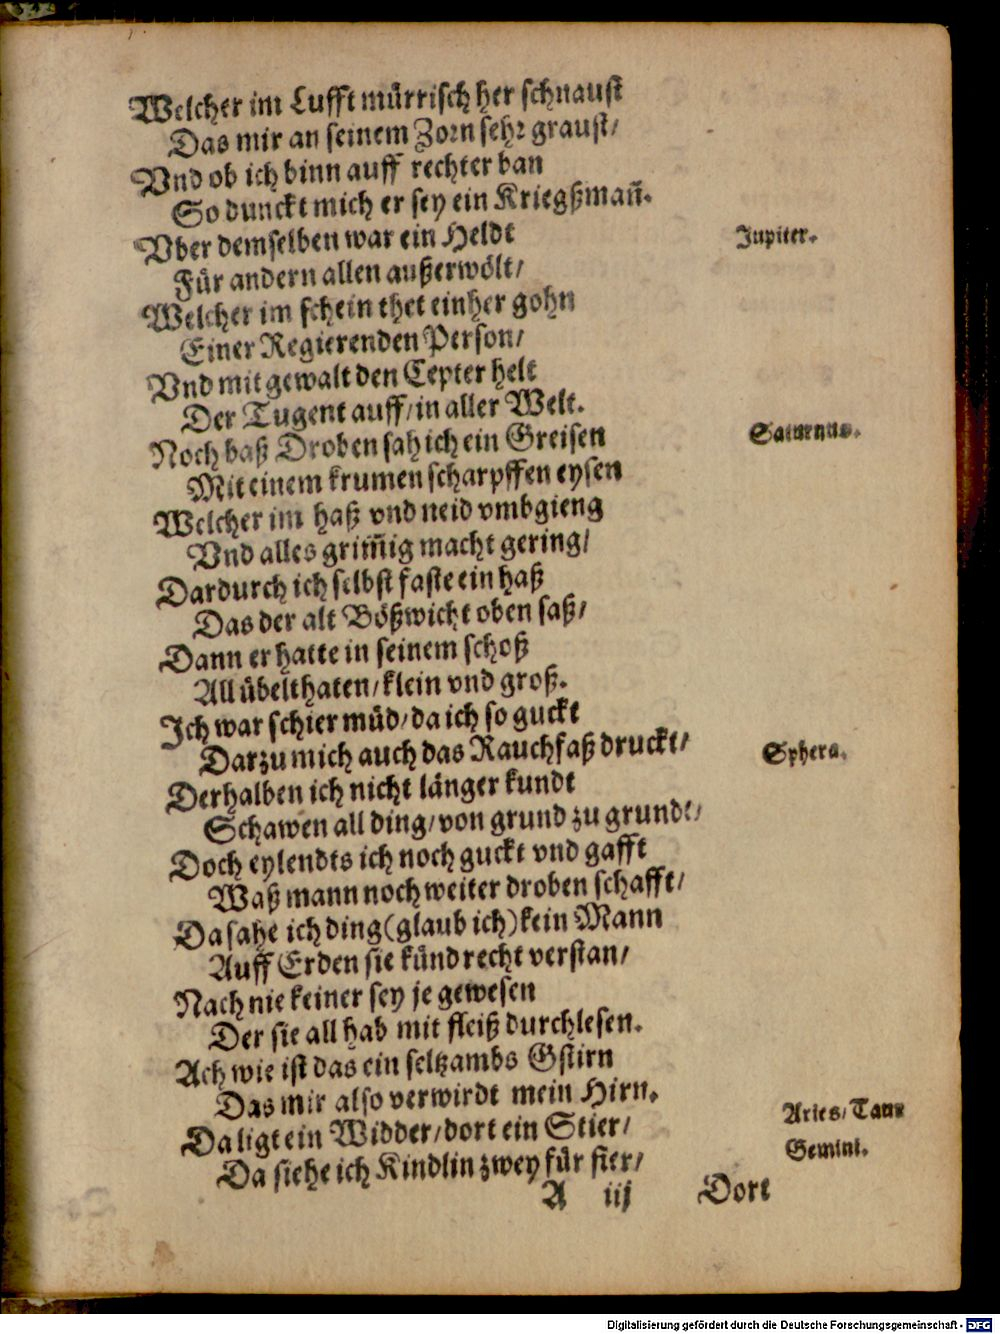 Welcher im Lufft mürrisch her schnaust
Das mir an seinem Zorn sehr graust/
Vnd ob ich binn auff rechter ban
So dunckt mich er sey ein Kriegßmañ.
Vber demselben war ein Heldt
Jupiter.
Für andern allen außerwölt/
Welcher im schein thet einher gohn
Einer Regierenden Person/
Vnd mit gewalt den Cepter helt
Der Tugent auff/ in aller Welt.
Noch baß Droben sah ich ein Greisen
Saturnus.
Mit einem krumen scharpffen eysen
Welcher im haß vnd neid vmbgieng
Vnd alles grim̃ig macht gering/
Dardurch ich selbst faste ein haß
Das der alt Bößwicht oben saß/
Dann er hatte in seinem schoß
All übelthaten/ klein vnd groß.
Ich war schier müd/ da ich so guckt
Darzu mich auch das Rauchfaß druckt/
Sphera.
Derhalben ich nicht länger kundt
Schawen all ding/ von grund zu grundt/
Doch eylendts ich noch guckt vnd gafft
Waß mann noch weiter droben schafft/
Da sahe ich ding (glaub ich) kein Mann
Auff Erden sie künd recht verstan/
Nach nie keiner sey je gewesen
Der sie all hab mit fleiß durchlesen.
Ach wie ist das ein seltzambs Gstirn
Das mir also verwirdt mein Hirn.
Da ligt ein Widder/ dort ein Stier/
Aries/ Taur
Da siehe ich Kindlin zwey für sier/
Gemini.
A iij
Dort
Digitalisierung gefördert durch die Deutsche Forschungsgemeinschaft - DFG